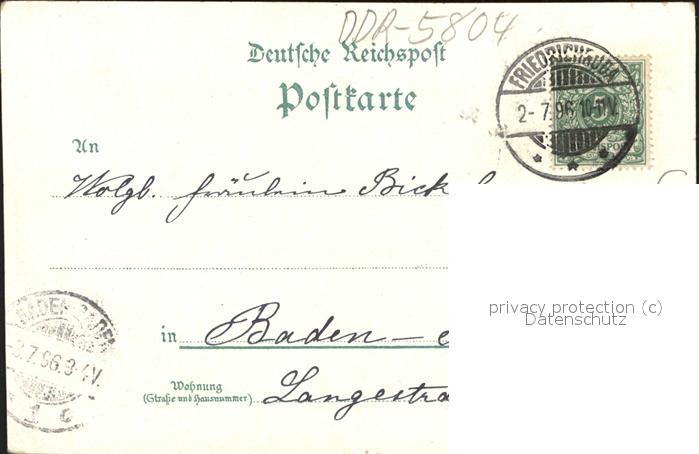 DDR-5804
Deutsche Reichspost
Postkarte
FRIEDRICHRODA
2-7.96 10-11V.
An
Wolgb. Fräulein Bick
privacy protection (c)
Datenschutz
BADEN-BADEN
3.7.96.3-4V.
1 c
in Baden-
Wohnung
(Straße und Hausnummer) Langestra